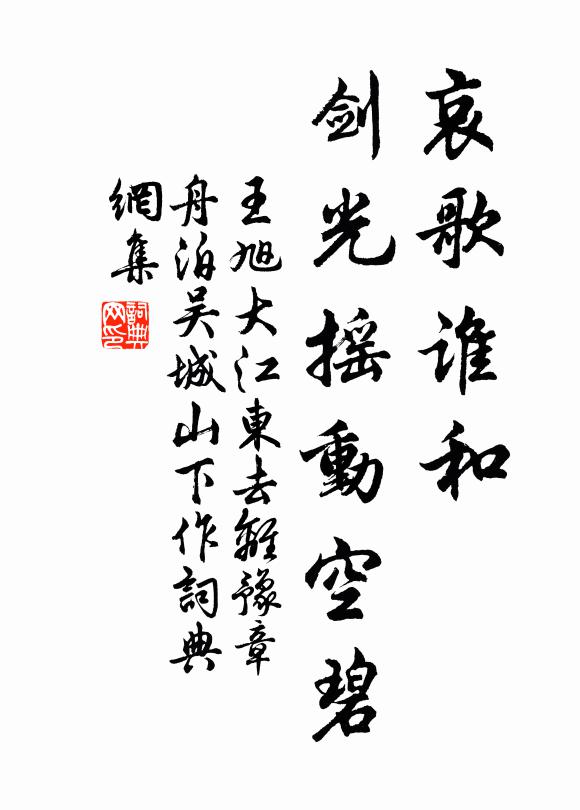 哀歌谁和
剑光摇動空碧
王旭大江東去離豫章
舟泊吴城山下作詞典
網集
詞典
网印